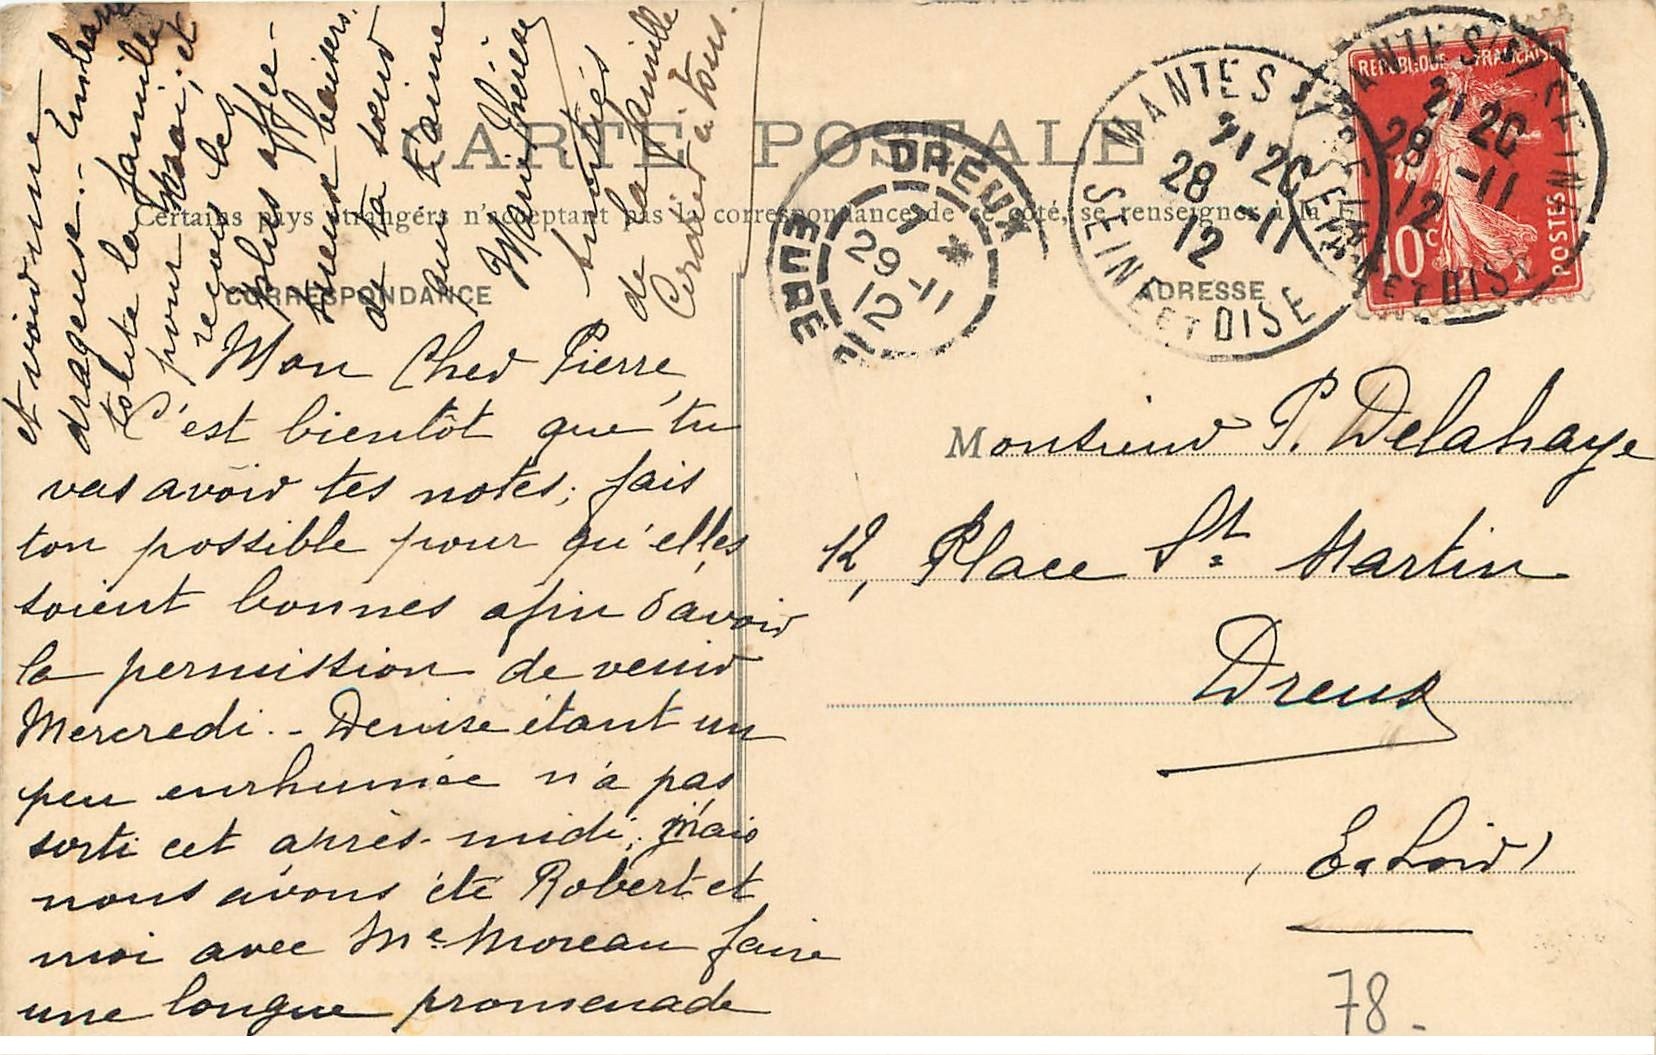 CARTE POSTALE
Certains pays étrangers n'acceptent pas la correspondance de ce côté, se renseigner à la
CORRESPONDANCE
ADRESSE
Mon Cher Pierre,
C'est bientôt que tu
vas avoir tes notes; fais
ton possible pour qu'elles
soient bonnes afin d'avoir
la permission de venir
Mercredi.- Denise étant un
peu enrhumée n'a pas
sorti cet après-midi; mais
nous avons été Robert et
moi avec Me Moreau faire
une longue promenade
et voir une
dragueuse.- Embrasse
toute la famille
pour moi; et
reçois les
plus affec-
tueux baisers
de ta sœur
qui t'aime
Marie Thérèse
Amitiés
de la famille
à tous.
Monsieur P. Delahaye
12, Place St Martin
Dreux
(E. & Loir)
78.
REPUBLIQUE FRANÇAISE
10c
POSTES
MANTES S/ SEINE
21 20
28 -11
12
SEINE ET OISE
MANTES S/ SEINE
21 20
28 -11
12
SEINE ET OISE
DREUX
7 *
29 -11
12
EURE